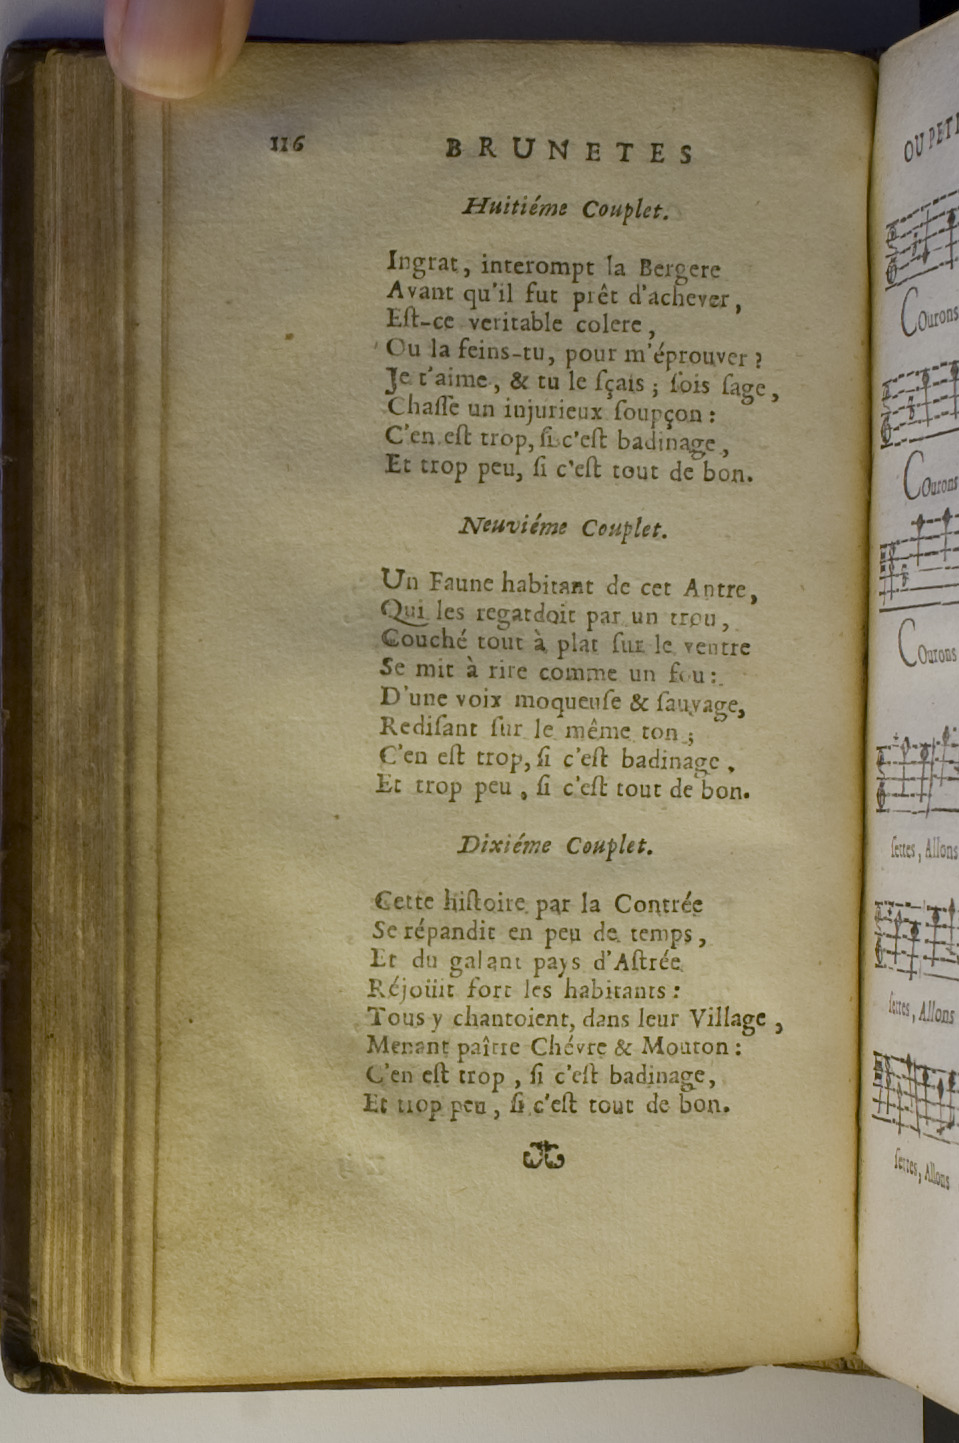 116
BRUNETES
Huitiéme Couplet.
Ingrat, interompt la Bergere
Avant qu'il fut prêt d'achever,
Eſt-ce veritable colere,
Ou la feins-tu, pour m'éprouver ?
Je t'aime, & tu le ſçais ; ſois ſage,
Chaſſe un injurieux ſoupçon :
C'en eſt trop, ſi c'eſt badinage,
Et trop peu, ſi c'eſt tout de bon.
Neuviéme Couplet.
Un Faune habitant de cet Antre,
Qui les regardoit par un trou,
Couché tout à plat ſur le ventre
Se mit à rire comme un fou :
D'une voix moqueuſe & ſauvage,
Rediſant ſur le même ton ;
C'en eſt trop, ſi c'eſt badinage,
Et trop peu, ſi c'eſt tout de bon.
Dixiéme Couplet.
Cette hiſtoire par la Contrée
Se répandit en peu de temps,
Et du galant pays d'Aſtrée
Réjoüit fort les habitants :
Tous y chantoient, dans leur Village,
Menant paître Chévre & Mouton :
C'en eſt trop, ſi c'eſt badinage,
Et trop peu, ſi c'eſt tout de bon.
OU PETI
Courons
Courons
Courons
ſettes, Allons
ſettes, Allons
ſettes, Allons